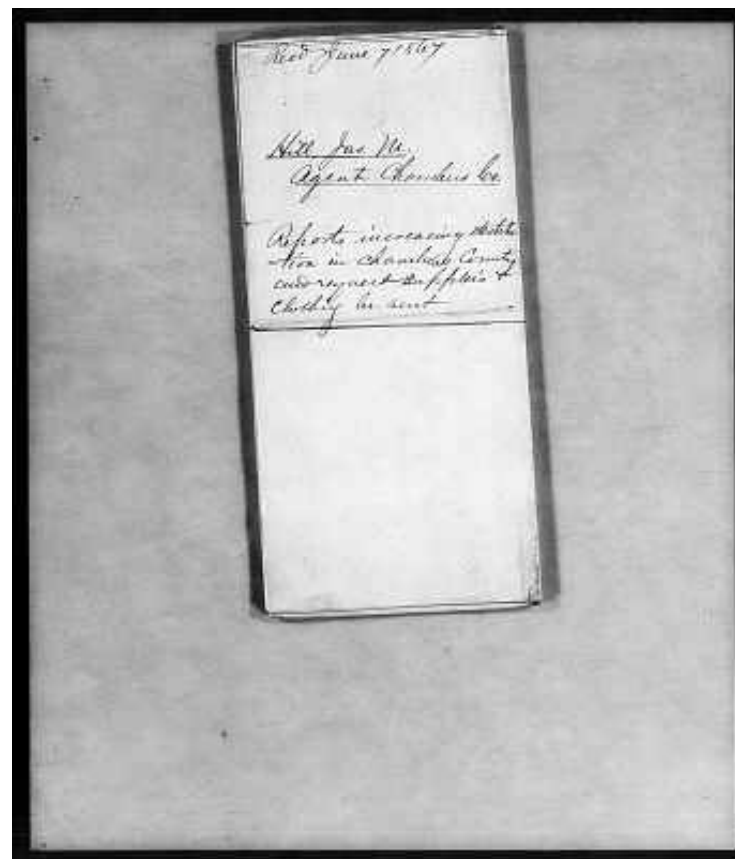 Recd June 7 1867
Hill Jas. M.
Agent Chambers Co
Reports increasing destitu
-tion in Chambers County
and request supplies &
clothing be sent